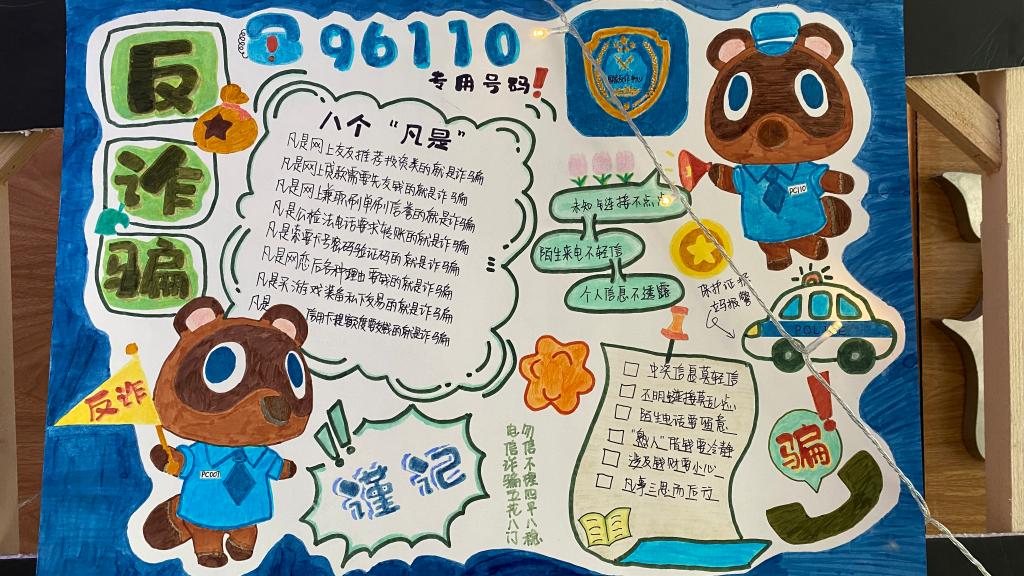 反
诈
骗
96110
专用号码!
八个“凡是”
凡是网上交友推荐投资类的就是诈骗
凡是网上贷款需要先交钱的就是诈骗
凡是网上兼职刷单刷信誉的就是诈骗
凡是公检法电话要求转账的就是诈骗
凡是索要卡号密码验证码的就是诈骗
凡是网恋后各种理由要钱的就是诈骗
凡是买游戏装备私下交易的就是诈骗
凡是 信用卡提额度要钱的就是诈骗
未知链接不点
陌生来电不轻信
个人信息不透露
PC110
保护证据
报警
POLICE
中奖信息莫轻信
不明链接莫乱点
陌生电话要留意
“熟人”借钱要冷静
涉及钱财要小心
凡事三思而后行
骗
反诈
PC001
谨记
电信诈骗五花八门
勿信不理四平八稳